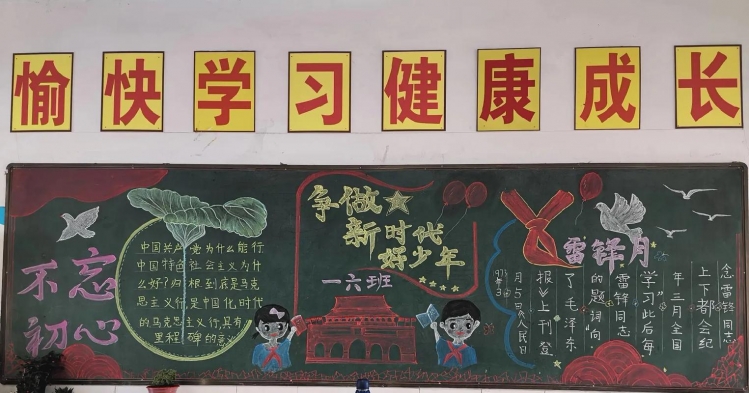 愉快学习健康成长
不忘
初心
中国共产党为什么能行
中国特色社会主义为什
么好?归根到底是马克
思主义行,是中国化时代
的马克思主义行,具有
里程碑的意义
争做
新时代
好少年
一六班
雷锋月
973年3
月5日《人民日
报》上刊登
了毛泽东
的题词“向
雷锋同志
学习”此后每
年三月全国
上下都会纪
念雷锋同志